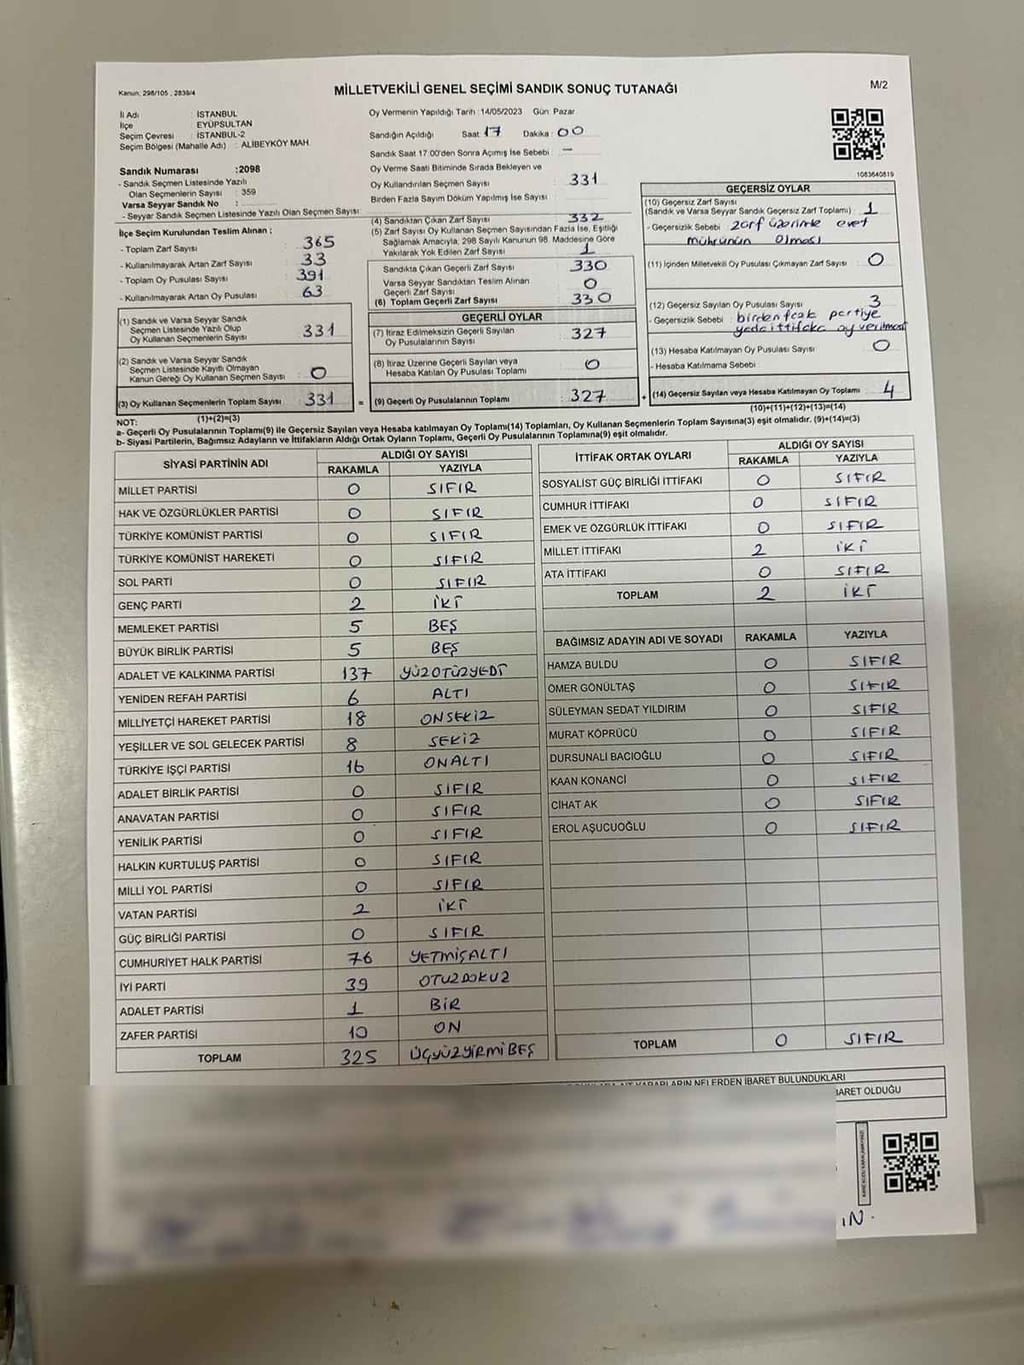 Kanun: 298/105 , 2839/4
MİLLETVEKİLİ GENEL SEÇİMİ SANDIK SONUÇ TUTANAĞI
M/2
İl Adı İSTANBUL
İlçe EYÜPSULTAN
Seçim Çevresi : İSTANBUL-2
Seçim Bölgesi (Mahalle Adı) : ALİBEYKÖY MAH.
Sandık Numarası :2098
- Sandık Seçmen Listesinde Yazılı
Olan Seçmenlerin Sayısı : 359
Varsa Seyyar Sandık No :
- Seyyar Sandık Seçmen Listesinde Yazılı Olan Seçmen Sayısı:
İlçe Seçim Kurulundan Teslim Alınan :
- Toplam Zarf Sayısı 365
- Kullanılmayarak Artan Zarf Sayısı : 33
- Toplam Oy Pusulası Sayısı : 391
- Kullanılmayarak Artan Oy Pusulası : 63
(1) Sandık ve Varsa Seyyar Sandık
Seçmen Listesinde Yazılı Olup
Oy Kullanan Seçmenlerin Sayısı 331
(2) Sandık ve Varsa Seyyar Sandık
Seçmen Listesinde Kayıtlı Olmayan
Kanun Gereği Oy Kullanan Seçmen Sayısı : 0
(3) Oy Kullanan Seçmenlerin Toplam Sayısı 331 =
(1)+(2)=(3)
Oy Vermenin Yapıldığı Tarih : 14/05/2023 Gün: Pazar
Sandığın Açıldığı Saat 17 Dakika : 00
Sandık Saat 17:00'den Sonra Açılmış İse Sebebi : —
Oy Verme Saati Bitiminde Sırada Bekleyen ve
Oy Kullandırılan Seçmen Sayısı 331
Birden Fazla Sayım Döküm Yapılmış İse Sayısı
(4) Sandıktan Çıkan Zarf Sayısı 332
(5) Zarf Sayısı Oy Kullanan Seçmen Sayısından Fazla İse, Eşitliği
Sağlamak Amacıyla, 298 Sayılı Kanunun 98. Maddesine Göre
Yakılarak Yok Edilen Zarf Sayısı 1
Sandıkta Çıkan Geçerli Zarf Sayısı 330
Varsa Seyyar Sandıktan Teslim Alınan
Geçerli Zarf Sayısı 0
(6) Toplam Geçerli Zarf Sayısı 330
GEÇERLİ OYLAR
(7) İtiraz Edilmeksizin Geçerli Sayılan
Oy Pusulalarının Sayısı : 327
(8) İtiraz Üzerine Geçerli Sayılan veya
Hesaba Katılan Oy Pusulası Toplamı 0
(9) Geçerli Oy Pusulalarının Toplamı 327 +
1083640819
GEÇERSİZ OYLAR
(10) Geçersiz Zarf Sayısı
(Sandık ve Varsa Seyyar Sandık Geçersiz Zarf Toplamı) 1
- Geçersizlik Sebebi zarf üzerinde evet
mührünün olması
(11) İçinden Milletvekili Oy Pusulası Çıkmayan Zarf Sayısı : 0
(12) Geçersiz Sayılan Oy Pusulası Sayısı : 3
- Geçersizlik Sebebi
(13) Hesaba Katılmayan Oy Pusulası Sayısı 0
- Hesaba Katılmama Sebebi
(14) Geçersiz Sayılan veya Hesaba Katılmayan Oy Toplamı 4
(10)+(11)+(12)+(13)=(14)
NOT:
a- Geçerli Oy Pusulalarının Toplamı(9) ile Geçersiz Sayılan veya Hesaba katılmayan Oy Toplamı(14) Toplamları, Oy Kullanan Seçmenlerin Toplam Sayısına(3) eşit olmalıdır. (9)+(14)=(3)
b- Siyasi Partilerin, Bağımsız Adayların ve İttifakların Aldığı Ortak Oyların Toplamı, Geçerli Oy Pusulalarının Toplamına(9) eşit olmalıdır.
SİYASİ PARTİNİN ADI
ALDIĞI OY SAYISI
RAKAMLA YAZIYLA
MİLLET PARTİSİ 0 SIFIR
HAK VE ÖZGÜRLÜKLER PARTİSİ 0 SIFIR
TÜRKİYE KOMÜNİST PARTİSİ 0 SIFIR
TÜRKİYE KOMÜNİST HAREKETİ 0 SIFIR
SOL PARTİ 0 SIFIR
GENÇ PARTİ 2 İKİ
MEMLEKET PARTİSİ 5 BEŞ
BÜYÜK BİRLİK PARTİSİ 5 BEŞ
ADALET VE KALKINMA PARTİSİ 137 YÜZOTUZYEDİ
YENİDEN REFAH PARTİSİ 6 ALTI
MİLLİYETÇİ HAREKET PARTİSİ 18 ONSEKİZ
YEŞİLLER VE SOL GELECEK PARTİSİ 8 SEKİZ
TÜRKİYE İŞÇİ PARTİSİ 16 ONALTI
ADALET BİRLİK PARTİSİ 0 SIFIR
ANAVATAN PARTİSİ 0 SIFIR
YENİLİK PARTİSİ 0 SIFIR
HALKIN KURTULUŞ PARTİSİ 0 SIFIR
MİLLİ YOL PARTİSİ 0 SIFIR
VATAN PARTİSİ 2 İKİ
GÜÇ BİRLİĞİ PARTİSİ 0 SIFIR
CUMHURİYET HALK PARTİSİ 76 YETMİŞALTI
İYİ PARTİ 39 OTUZDOKUZ
ADALET PARTİSİ 1 BİR
ZAFER PARTİSİ 10 ON
TOPLAM 325 ÜÇYÜZYİRMİBEŞ
İTTİFAK ORTAK OYLARI
ALDIĞI OY SAYISI
RAKAMLA YAZIYLA
SOSYALİST GÜÇ BİRLİĞİ İTTİFAKI 0 SIFIR
CUMHUR İTTİFAKI 0 SIFIR
EMEK VE ÖZGÜRLÜK İTTİFAKI 0 SIFIR
MİLLET İTTİFAKI 2 İKİ
ATA İTTİFAKI 0 SIFIR
TOPLAM 2 İKİ
BAĞIMSIZ ADAYIN ADI VE SOYADI RAKAMLA YAZIYLA
HAMZA BULDU 0 SIFIR
ÖMER GÖNÜLTAŞ 0 SIFIR
SÜLEYMAN SEDAT YILDIRIM 0 SIFIR
MURAT KÖPRÜCÜ 0 SIFIR
DURSUNALİ BACIOĞLU 0 SIFIR
KAAN KONANCİ 0 SIFIR
CİHAT AK 0 SIFIR
EROL AŞUCUOĞLU 0 SIFIR
TOPLAM 0 SIFIR
NELERDEN İBARET BULUNDUKLARI
İBARET OLDUĞU